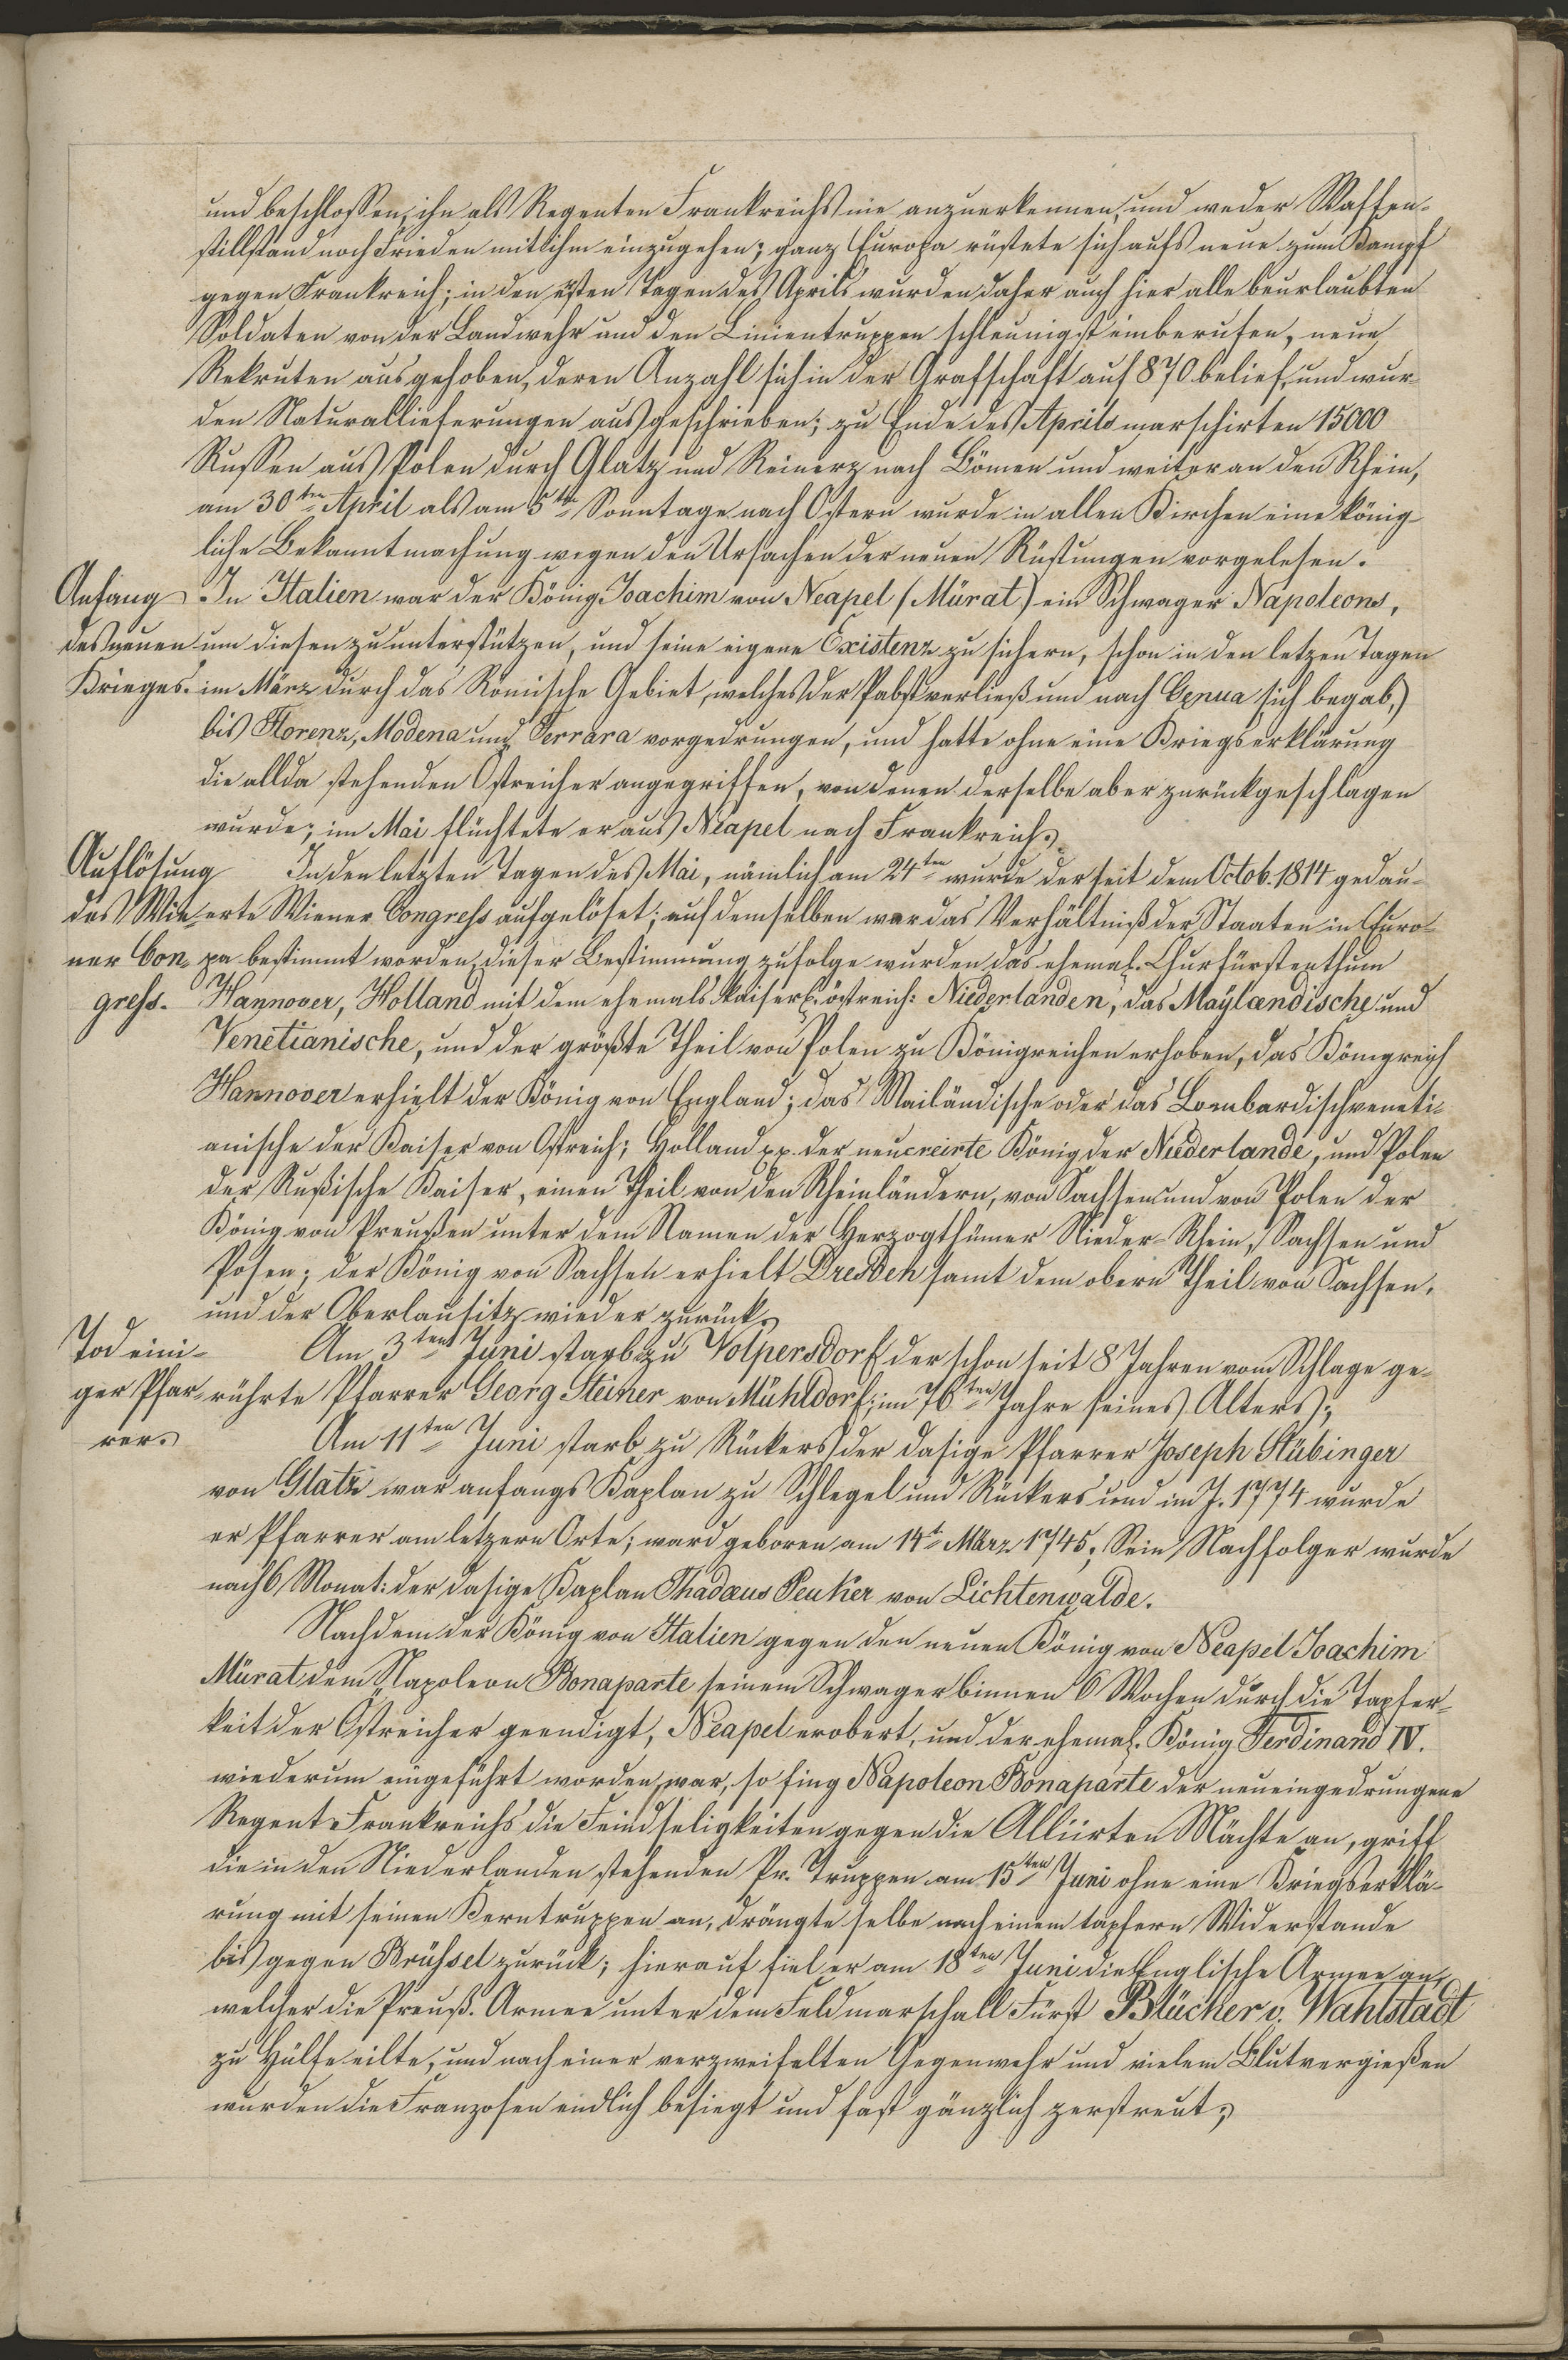 und beschloßen, ihn als Regenten Frankreichs nie anzuerkennen, und weder Waffen-
stillstand noch Frieden mit ihm einzugehen; ganz Europa rüstete sich aufs neue zum Kampf
gegen Frankreich; in den ersten Tagen des Aprils wurden daher auch hier alle beurlaubten
Soldaten von der Landwehr und den Linientruppen schleunigst einberufen, neue
Rekruten ausgehoben, deren Anzahl sich in der Grafschaft auf 870 belief, und wur-
den Naturallieferungen ausgeschrieben; zu Ende des Aprils marschirten 15000
Rußen aus Polen durch Glatz und Reinerz nach Bömen und weiter an den Rhein,
am 30ten April als am 5ten Sonntage nach Ostern wurde in allen Kirchen eine könig-
liche Bekanntmachung wegen den Ursachen der neuen Rüstungen vorgelesen.
Anfang In Italien war der König Joachim von Neapel (Mürat) ein Schwager Napoleons,
des neuen um diesen zu unterstützen, und seine eigene Existenz zu sichern, schon in den letzen Tagen
Krieges. im März durch das Römische Gebiet, welches der Pabst verließ und nach Genua sich begab,
bis Florenz, Modena und Ferrara vorgedrungen, und hatte ohne eine Kriegserklärung
die allda stehenden Östreicher angegriffen, von denen derselbe aber zurückgeschlagen
wurde; im Mai flüchtete er aus Neapel nach Frankreich.
Auflösung In den letzten Tagen des Mai, nämlich am 24ten wurde der seit dem Octob. 1814 gedau-
des Wie- erte Wiener Congreß aufgelöset; auf demselben war das Verhältniß der Staaten in Euro-
ner Con- pa bestimmt worden, dieser Bestimmung zufolge wurden das ehemal. Churfürstenthum
greß. Hannover, Holland mit dem ehemals kaiserl. östreich: Niederlanden, das Maylændische und
Venetianische, und der größte Theil von Polen zu Königreichen erhoben, das Königreich
Hannover erhielt der König von England; das Mailändische oder das Lombardischveneti-
anische der Kaiser von Östreich; Holland pp. der neucreirte König der Niederlande, und Polen
der Rußische Kaiser, einen Theil von den Rheinländern, von Sachsen und von Polen der
König von Preußen unter dem Namen der Herzogthümer Nieder-Rhein, Sachsen und
Posen; der König von Sachsen erhielt Dresden samt dem obern Theil von Sachsen,
und der Oberlausitz wieder zurück.
Tod eini- Am 3ten Juni starb zu Volpersdorf der schon seit 8 Jahren vom Schlage ge-
ger Pfar- rührte Pfarrer Georg Steiner von Mühldorf; im 76ten Jahre seines Alters;
rer. Am 11ten Juni starb zu Rückers der dasige Pfarrer Joseph Stübinger
von Glatz war anfangs Kaplan zu Schlegel und Rückers und im J. 1774 wurde
er Pfarrer am letzern Orte; ward geboren am 14t März 1745; Sein Nachfolger wurde
nach 6 Monat: der dasige Kaplan Thadæus Peuker von Lichtenwalde.
Nachdem der König von Italien gegen den neuen König von Neapel Joachim
Mürat dem Napoleon Bonaparte seinem Schwager binnen 6 Wochen durch die Tapfer-
keit der Östreicher geendigt, Neapel erobert, und der ehemal. König Ferdinand IV.
wiederum eingeführt worden war, so fing Napoleon Bonaparte der neueingedrungene
Regent Frankreichs die Feindseligkeiten gegen die Alliirten Mächte an, griff
die in den Niederlanden stehenden Pr. Truppen am 15ten Juni ohne eine Kriegserklä-
rung mit seinen Kerntruppen an, drängte selbe nach einem tapfern Widerstande
bis gegen Brüßel zurück; hierauf fiel er am 18ten Juni die Englische Armee an,
welcher die Preuß. Armee unter dem Feldmarschall Fürst Blücher v. Wahlstadt
zu Hülfe eilte, und nach einer verzweifelten Gegenwehr und vielem Blutvergießen
wurden die Franzosen endlich besiegt und fast gänzlich zerstreut;